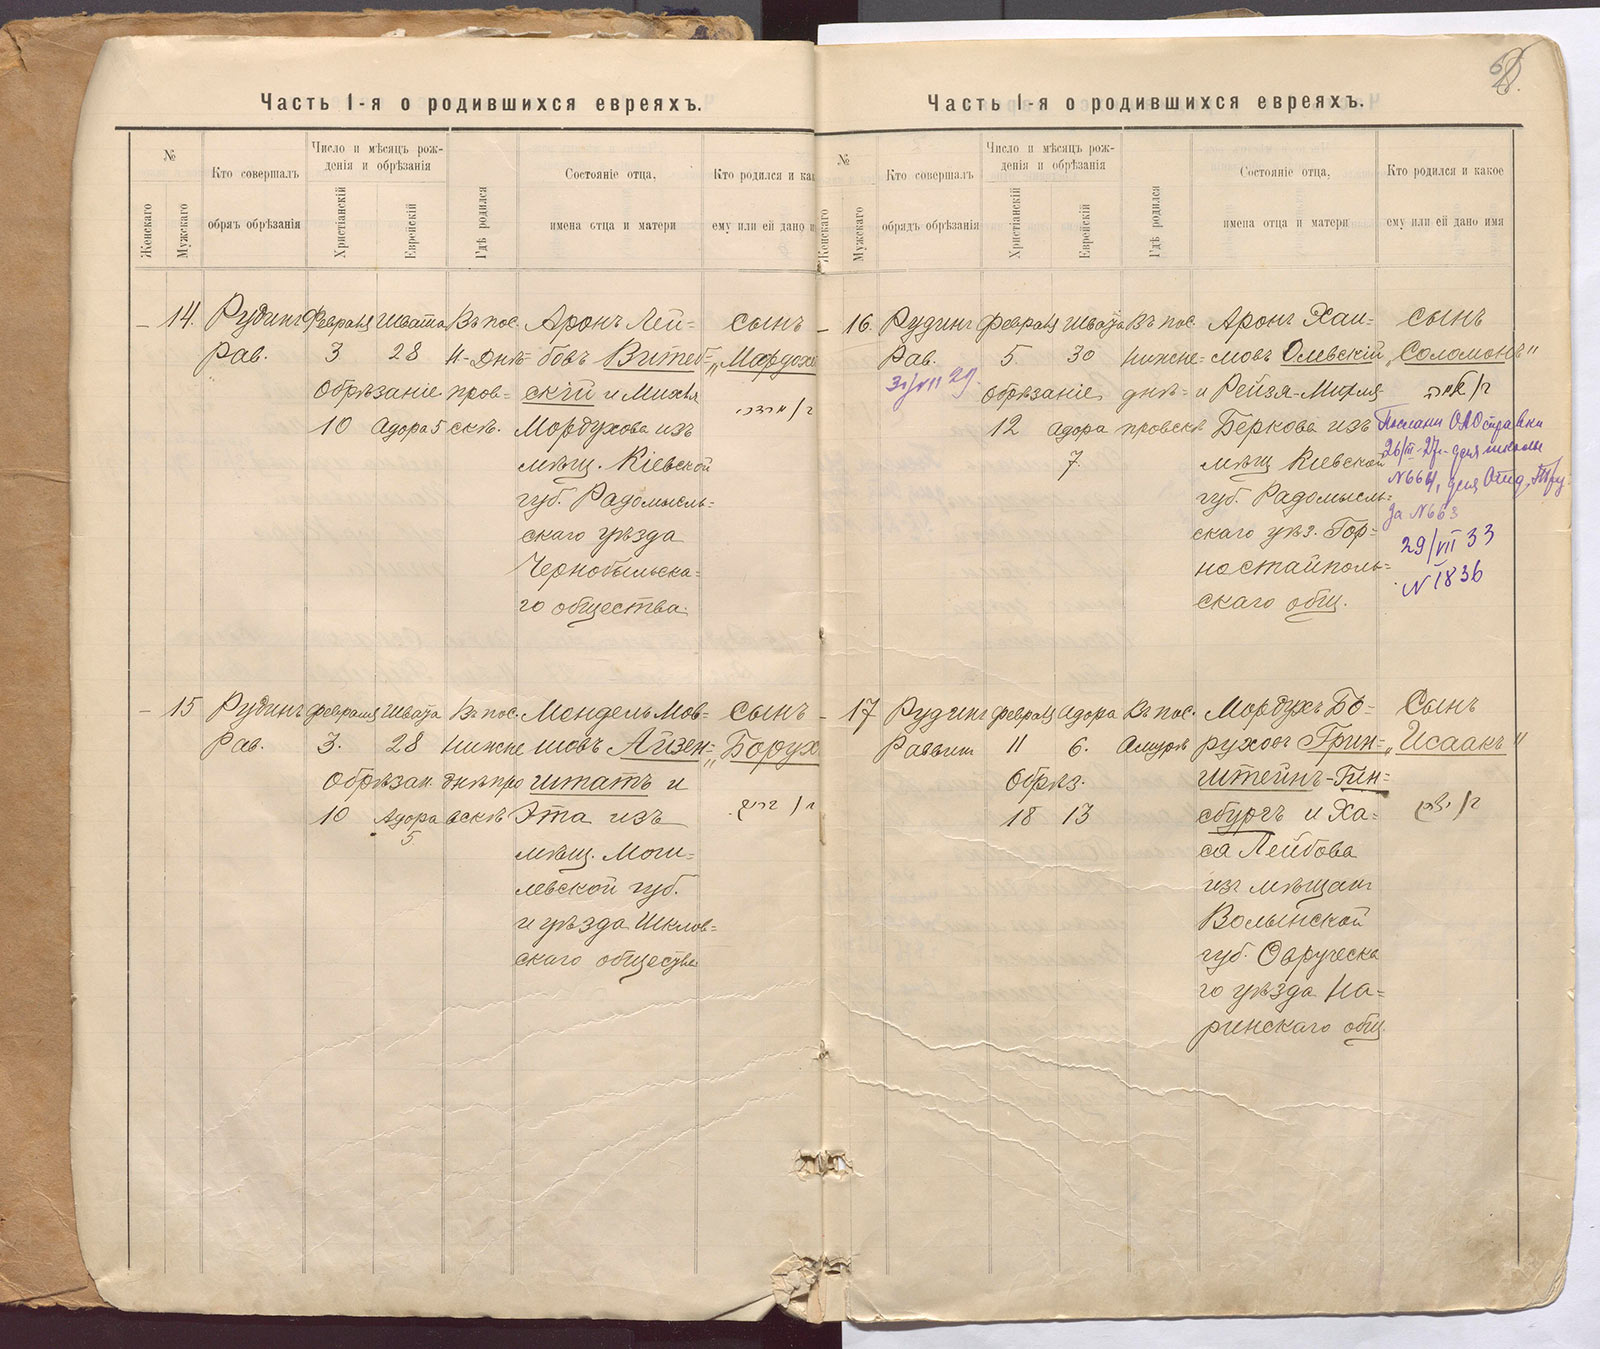 Часть 1-я о родившихся евреяхъ.
№
Женскаго
Мужскаго
Кто совершалъ
обрядъ обрѣзанія
Число и мѣсяцъ рож-
денія и обрѣзанія
Христіанскій
Еврейскій
Гдѣ родился
Состояніе отца,
имена отца и матери
Кто родился и как
ему или ей дано и
– 14.
Рудинъ
Рав.
Февраля
3
Обрѣзаніе
10
Швата
28
Адора 5
Въ пос.
Н-Днѣ-
пров-
скѣ.
Аронъ Лей-
бовъ Витеб-
скій и Михля
Мордухова изъ
мѣщ. Кіевской
губ. Радомысль-
скаго уѣзда
Чернобыльска-
го общества.
сынъ
„Мордохе
– 15
Рудинъ
Рав.
Февраля
3.
Обрѣзан.
10
Швата
28
Адора
5
Въ пос.
Нижне
днѣпро
вскѣ
Мендель Мов-
шовъ Айзен-
штатъ и
Эта изъ
мѣщ. Моги-
левской губ.
и уѣзда Шклов-
скаго общества
сынъ
„Борух
Часть 1-я о родившихся евреяхъ.
№
Женскаго
Мужскаго
Кто совершалъ
обрядъ обрѣзанія
Число и мѣсяцъ рож-
денія и обрѣзанія
Христіанскій
Еврейскій
Гдѣ родился
Состояніе отца,
имена отца и матери
Кто родился и какое
ему или ей дано имя
– 16.
Рудинъ
Рав.
Февраля
5.
Обрѣзаніе
12
Швата
30
Адора
7.
Въ пос.
Нижне-
днѣ-
провскѣ
Аронъ Хаи-
мовъ Олевскій
и Рейзя-Михля
Беркова изъ
мѣщ Кіевской
губ. Радомысль-
скаго уѣз. Гор-
ностайполь-
скаго общ.
сынъ
„Соломонъ"
№ 664, для
За № 663
29/VII 33
№ 1836
– 17
Рудинъ
Раввин
Февраля
11
Обрѣз.
18
Адора
6.
13
Въ пос.
Амурѣ
Мордухъ Бо-
руховъ Грин-
штейнъ-Гин-
сбургъ и Ха-
са Лейбова
изъ мѣщанъ
Волынской
губ. Овруческа
го уѣзда На-
ринскаго общ
Сынъ
„Исаакъ"